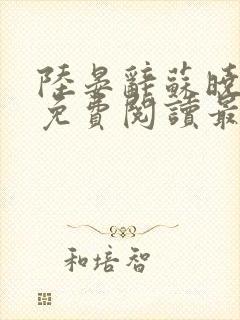 陸晏辭蘇曉
免費閱讀最
和培智